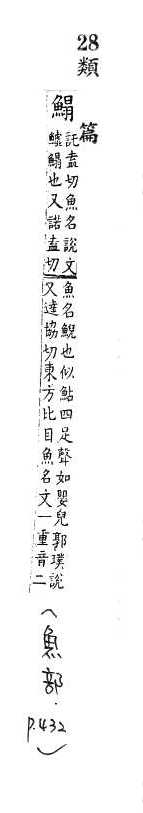 28
類篇
鰨
託盍切魚名說文
鱋鰨也又諾盍切
魚名鯢也似鮎四足聲如嬰兒郭璞說
又達協切東方比目魚名文一重音二
(魚部.
p.432)